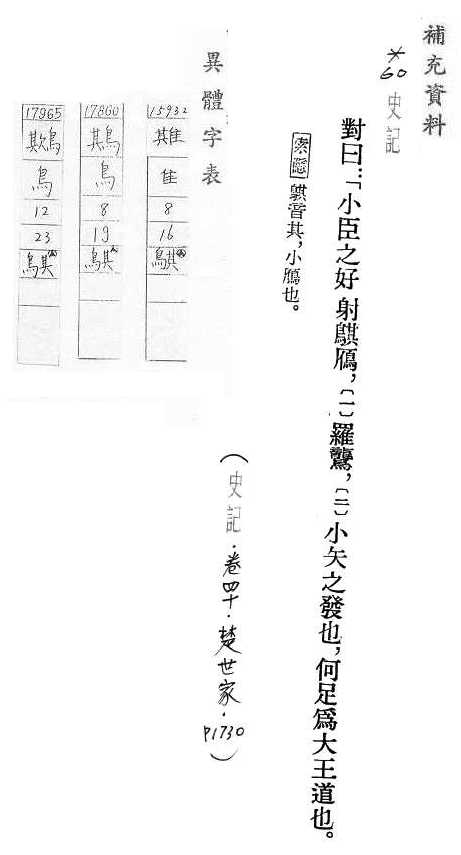 補充資料
*60 史記
對曰:「小臣之好射鶀鴈,〔一〕羅鸗,〔二〕小矢之發也,何足爲大王道也。
索隱 鶀音其,小鴈也。
(史記.卷四十.楚世家.P1730)
異體字表
15932
隹
8
16
17860
鶀
鳥
8
19
17965
鳥
12
23